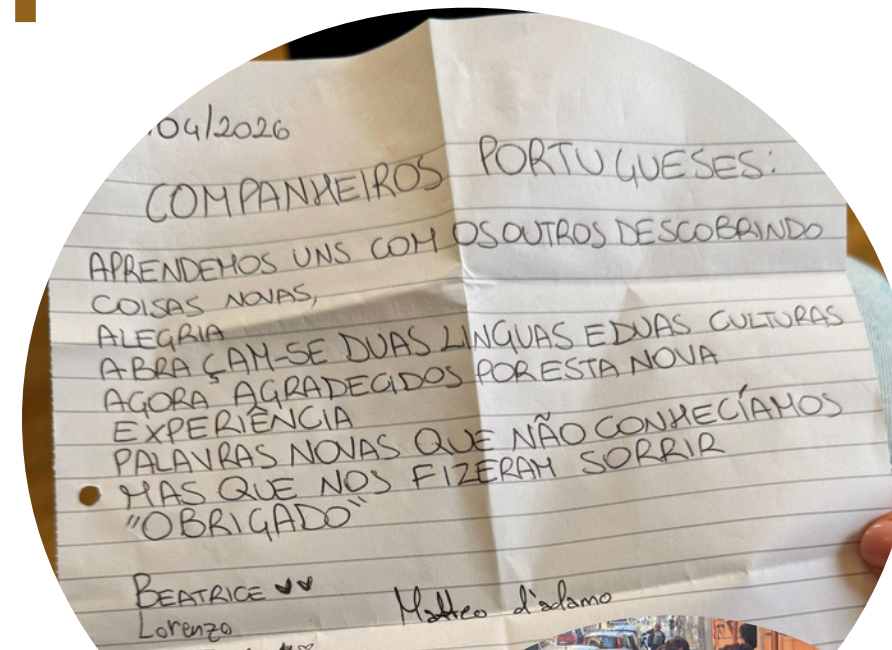 04/2026
COMPANHEIROS PORTUGUESES:
APRENDEMOS UNS COM OS OUTROS DESCOBRINDO
COISAS NOVAS,
ALEGRIA
ABRAÇAM-SE DUAS LINGUAS E DUAS CULTURAS
AGORA AGRADECIDOS POR ESTA NOVA
EXPERIÊNCIA
PALAVRAS NOVAS QUE NÃO CONHECÍAMOS
MAS QUE NOS FIZERAM SORRIR
"OBRIGADO"
BEATRICE
Matteo d'adamo
Lorenzo